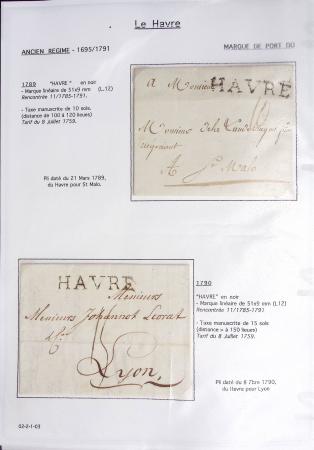 Le Havre
ANCIEN REGIME - 1695/1791
MARQUE DE PORT DU
1789 "HAVRE" en noir
- Marque linéaire de 51x9 mm (L.12)
Rencontrée 11/1785-1791.
- Taxe manuscrite de 10 sols.
(distance de 100 à 120 lieues)
Tarif du 8 Juillet 1759.
Pli daté du 21 Mars 1789,
du Havre pour St Malo.
HAVRE
a Monsieur
Monsieur
negotiant
A St Malo
HAVRE
Messieurs
Messieurs Johannot
Lyon
1790
"HAVRE" en noir
- Marque linéaire de 51x9 mm (L12)
Rencontrée 11/1785-1791
- Taxe manuscrite de 15 sols
(distance > à 150 lieues)
Tarif du 8 Juillet 1759.
Pli daté du 6 7bre 1790,
du Havre pour Lyon
02-2-1-03